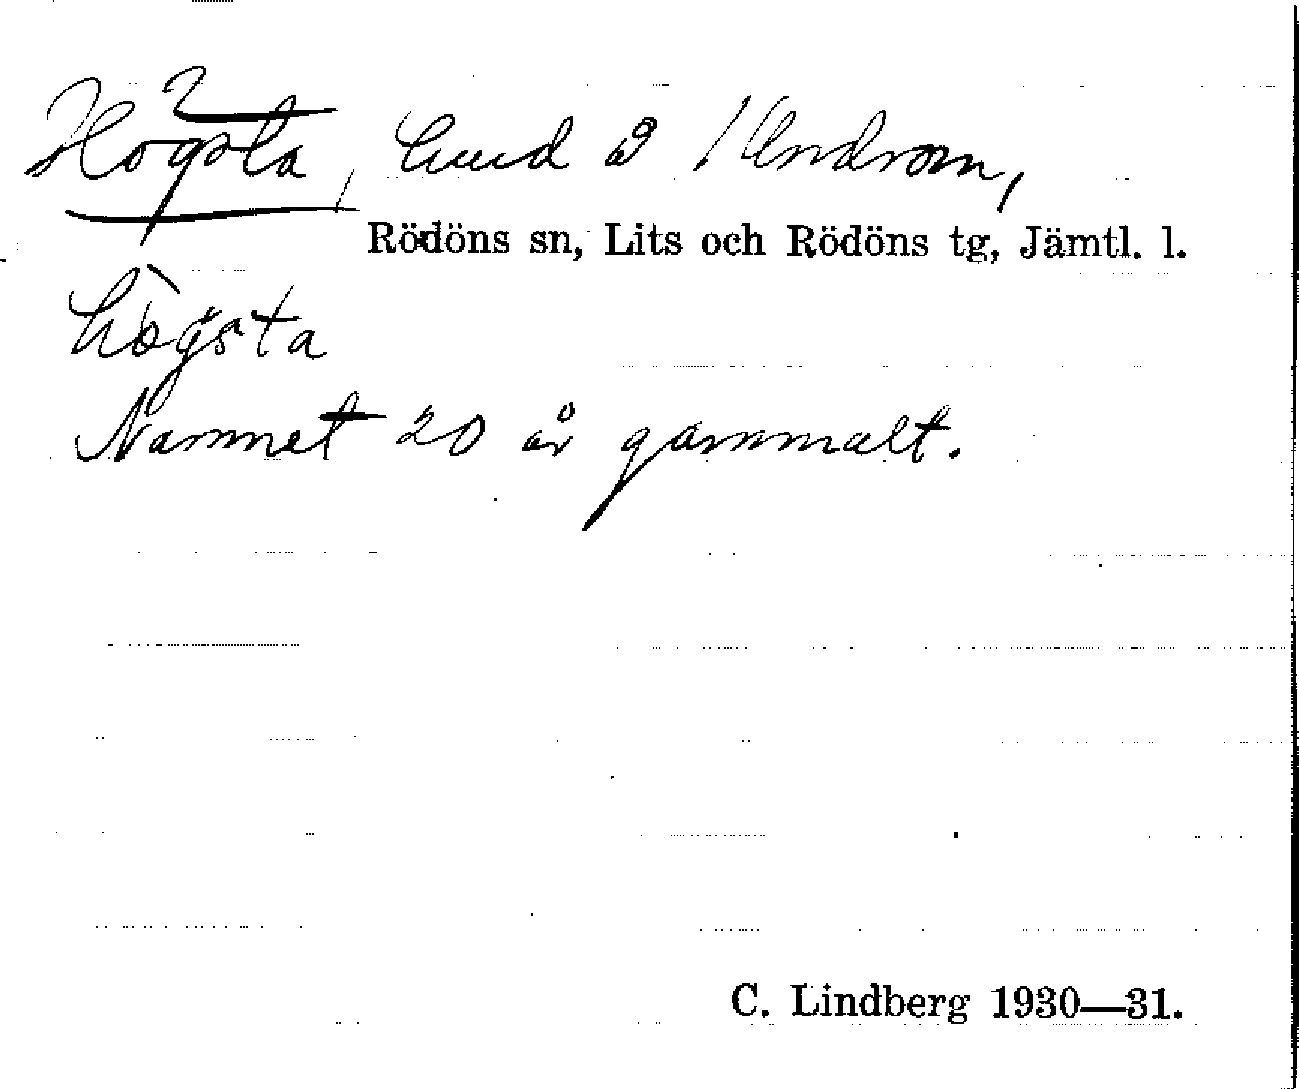 Högsta, å 1 Undrom,
Rödöns sn, Lits och Rödöns tg, Jämtl. l.
hògsta
Namnet 20 år gammalt.
C. Lindberg 1930—31.